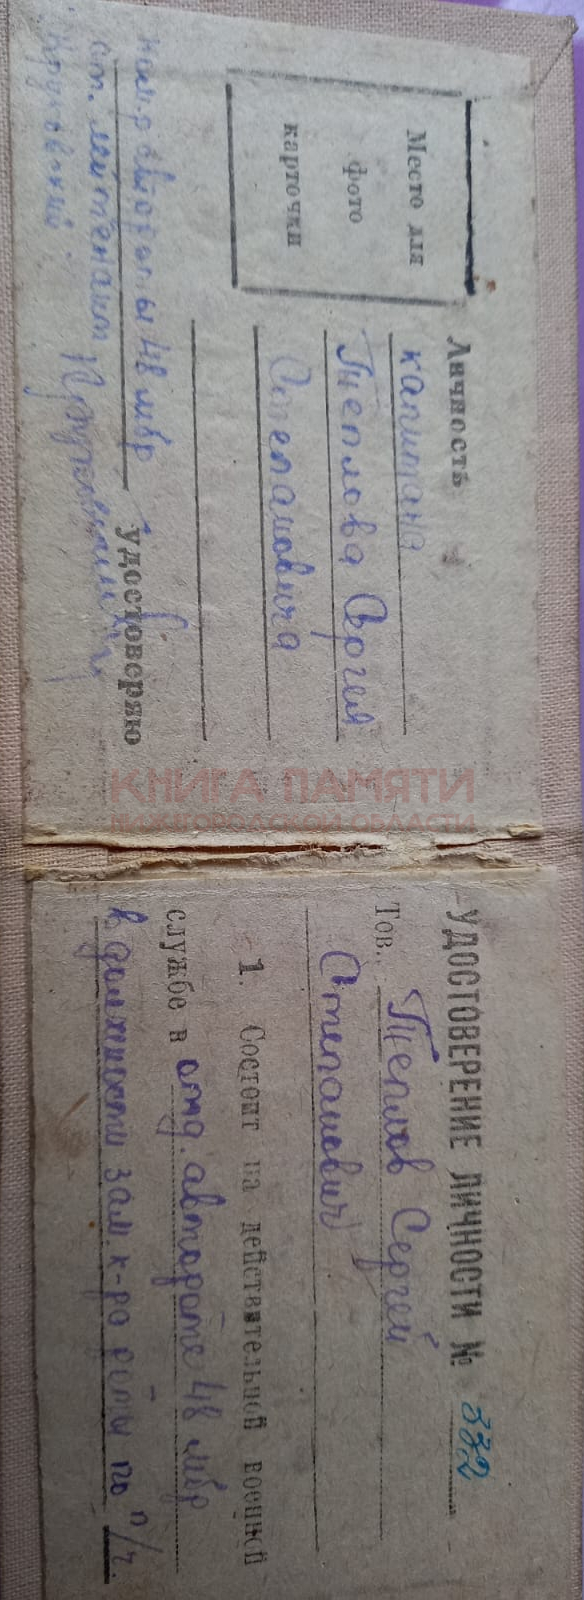 Место для
фото
карточки
Личность
капитана
Теплова Сергея
Степановича
удостоверяю
автороты 48 мбр
ст. лейтенант
КНИГА ПАМЯТИ
НИЖЕГОРОДСКОЙ ОБЛАСТИ
УДОСТОВЕРЕНИЕ ЛИЧНОСТИ № 332
Тов. Теплов Сергей
Степанович
1. Состоит на действительной военной
службе в отд. автороте 48 мбр
в должности зам. к-ра роты по п/ч.